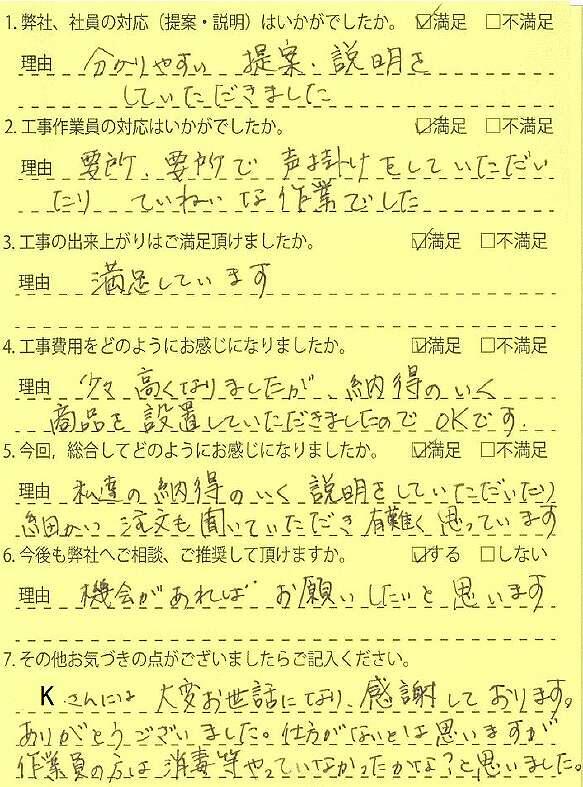 1. 弊社、社員の対応（提案・説明）はいかがでしたか。 ☑満足 □不満足
理由 分かりやすい 提案、説明を
していただきました
2. 工事作業員の対応はいかがでしたか。 ☑満足 □不満足
理由 要所、要所で 声掛けをしていただい
たり ていねいな作業でした
3. 工事の出来上がりはご満足頂けましたか。 ☑満足 □不満足
理由 満足しています
4. 工事費用をどのようにお感じになりましたか。 ☑満足 □不満足
理由 少々 高くなりましたが、納得のいく
商品を設置していただきましたので OKです.
5. 今回，総合してどのようにお感じになりましたか。 ☑満足 □不満足
理由 私達の納得のいく 説明をしていただいたり
細かい 注文も聞いていただき 有難く思っています
6. 今後も弊社へご相談、ご推奨して頂けますか。 ☑する □しない
理由 機会があれば お願いしたいと思います
7. その他お気づきの点がございましたらご記入ください。
K さんには 大変お世話になり、感謝しております。
ありがとうございました。仕方がないとは思いますが
作業員の方は 消毒等やっていなかったかな？と思いました。